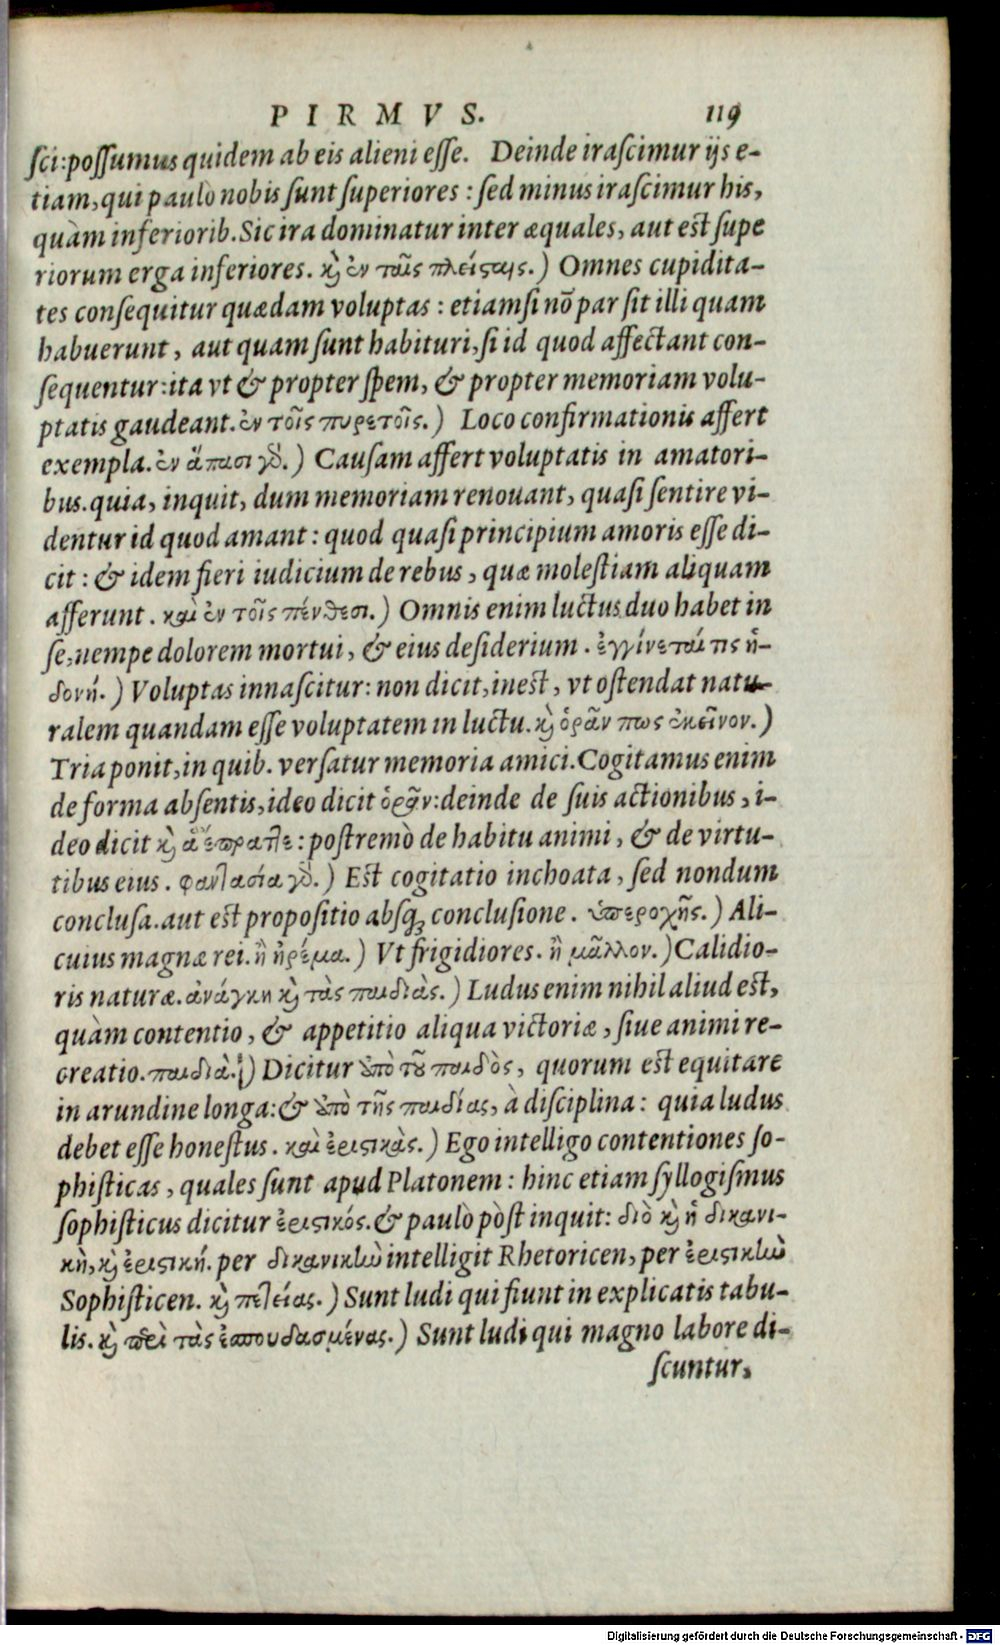 PIRMVS. 119
ſci: poſſumus quidem ab eis alieni eſſe. Deinde iraſcimur ijs e-
tiam, qui paulò nobis ſunt ſuperiores: ſed minus iraſcimur his,
quàm inferiorib. Sic ira dominatur inter æquales, aut eſt ſupe
riorum erga inferiores. κ̀ ἐν ταῖς πλείϛαις.) Omnes cupidita-
tes conſequitur quædam voluptas: etiamſi nõ par ſit illi quam
habuerunt, aut quam ſunt habituri, ſi id quod affectant con-
ſequentur: ita vt & propter ſpem, & propter memoriam volu-
ptatis gaudeant. ἐν τοῖς πυρετοῖς.) Loco confirmationis affert
exempla. ἐν ἅπασι γδ̀.) Cauſam affert voluptatis in amatori-
bus. quia, inquit, dum memoriam renouant, quaſi ſentire vi-
dentur id quod amant: quod quaſi principium amoris eſſe di-
cit: & idem fieri iudicium de rebus, quæ moleſtiam aliquam
afferunt. καὶ ἐν τοῖς πένθεσι.) Omnis enim luctus duo habet in
ſe, nempe dolorem mortui, & eius deſiderium. ἐγγίνεταί τις ἡ-
δονή.) Voluptas innaſcitur: non dicit, ineſt, vt oſtendat natu-
ralem quandam eſſe voluptatem in luctu. κ̀ ὁρᾶν πως ἐκεῖνον.)
Tria ponit, in quib. verſatur memoria amici. Cogitamus enim
de forma abſentis, ideo dicit ὁρᾶν: deinde de ſuis actionibus, i-
deo dicit κ̀ ἃ ἔπραττε: poſtremò de habitu animi, & de virtu-
tibus eius. φαντασία γδ̀.) Eſt cogitatio inchoata, ſed nondum
concluſa. aut eſt propoſitio abſq; concluſione. ὑπεροχῆς.) Ali-
cuius magnæ rei. ἢ ἠρέμα.) Vt frigidiores. ἢ μᾶλλον.) Calidio-
ris naturæ. ἀνάγκη κ̀ τὰς παιδιὰς.) Ludus enim nihil aliud eſt,
quàm contentio, & appetitio aliqua victoriæ, ſiue animi re-
creatio. παιδιὰ.) Dicitur ὑπὸ τοῦ παιδὸς, quorum eſt equitare
in arundine longa: & ὑπὸ τῆς παιδίας, à diſciplina: quia ludus
debet eſſe honeſtus. καὶ ἐριϛικὰς.) Ego intelligo contentiones ſo-
phiſticas, quales ſunt apud Platonem: hinc etiam ſyllogiſmus
ſophiſticus dicitur ἐριϛικός. & paulò pòſt inquit: διὸ κ̀ ἡ δικανι-
κὴ, κ̀ ἐριϛική. per δικανικὴν intelligit Rhetoricen, per ἐριϛικὴν
Sophiſticen. κ̀ πετείας.) Sunt ludi qui fiunt in explicatis tabu-
lis. κ̀ περὶ τὰς ἐσπουδασμένας.) Sunt ludi qui magno labore di-
ſcuntur,
Digitalisierung gefördert durch die Deutsche Forschungsgemeinschaft - DFG